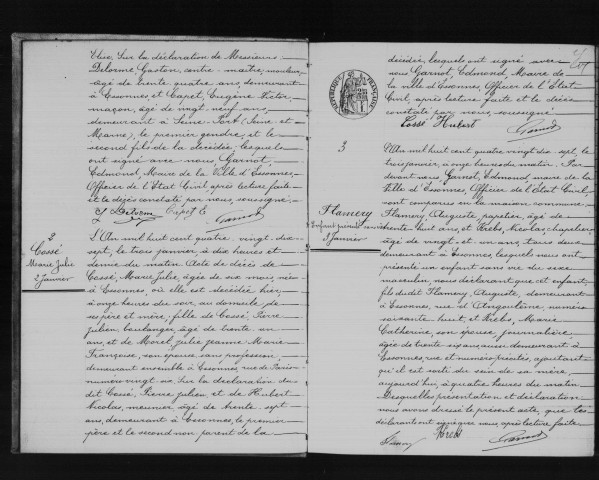 Élise. Sur la déclaration de Messieurs
Delorme Gaston, contre-maître, mouleur,
âgé de trente quatre ans, demeurant
à Essonnes, et Capet, Eugène Victor,
maçon, âgé de vingt-neuf ans,
demeurant à Seine-Port (Seine et
Marne), le premier gendre, et le
second fils de la décédée, lesquels
ont signé avec nous Garnot,
Edmond, Maire de la Ville d'Essonnes,
Officier de l'État Civil après lecture faite
et le décès constaté par nous, soussigné.
G. Delorme
Garnot
2
Cossé
Marie Julie
2 janvier
L'An mil huit cent quatre-vingt-dix-
sept, le trois janvier à dix heures et
demie du matin. Acte de décès de
Cossé, Marie Julie, âgée de six mois, née
à Essonnes, où elle est décédée hier,
à onze heures du soir, au domicile de
ses père et mère, fille de Cossé, Pierre
Julien, boulanger, âgé de trente un
ans, et de Morel, Julie Jeanne Marie
Françoise, son épouse, sans profession,
demeurant ensemble à Essonnes, rue de Paris
numéro vingt six. Sur la déclaration du
dit Cossé, Pierre Julien, et de Hubert
Nicolas, meunier, âgé de trente-sept
ans, demeurant à Essonnes, le premier
père et le second non parent de la
décédée, lesquels ont signé avec
nous Garnot, Edmond, Maire de
la ville d'Essonnes, Officier de l'État
Civil, après lecture faite et le décès
constaté par nous, soussigné
Cossé Hubert
Garnot
3
Flamery
Enfant présenté sans vie
3 Janvier
L'An mil huit cent quatre-vingt-dix-sept, le
trois janvier, à onze heures du matin. Par
devant nous, Garnot, Edmond, maire de la
Ville d'Essonnes, Officier de l'État Civil,
sont comparus en la maison commune
Flamery, Auguste, papetier, âgé de
trente-huit ans, et Krebs, Nicolas, chapelier,
âgé de vingt-et-un ans, tous deux
demeurant à Essonnes, lesquels nous ont
présenté un enfant sans vie du sexe
masculin, nous déclarant que cet enfant,
fils du dit Flamery, Auguste, demeurant
à Essonnes, rue d'Angoulême, numéro
soixante-huit, et Krebs, Marie
Catherine, son épouse, journalière,
âgée de trente-six ans aussi demeurant à
Essonnes, rue et numéro précités, ajoutant
qu'il est sorti du sein de sa mère,
aujourd'hui, à quatre heures du matin
Desquelles présentation et déclaration
nous avons dressé le présent acte, que les
déclarants ont signé avec nous, après lecture faite
Krebs
Garnot